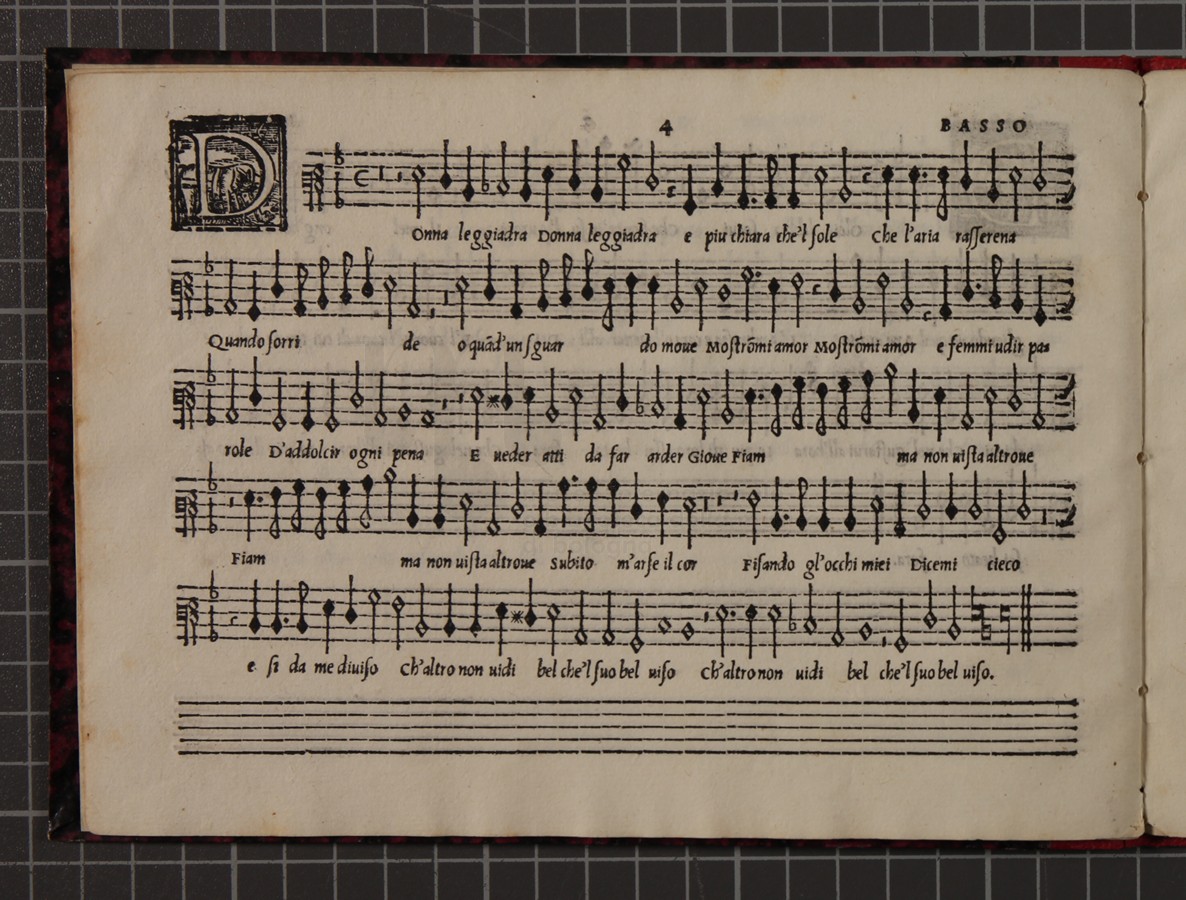 4 BASSO
DOnna leggiadra Donna leggiadra e piu chiara che'l sole Che l'aria rasserena
Quando sorri de o quãd'un sguar do moue Mostrõmi amor Mostrõmi amor e femmi udir pa
role D'addolcir ogni pena E ueder atti da far arder Gioue Fiam ma non uista altroue
Fiam ma non uista altroue Subito m'arse il cor Fisando gl'occhi miei Dicemi cieco
e si da me diuiso Ch'altro non uidi bel che'l suo bel uiso Ch'altro non uidi bel che'l suo bel uiso.